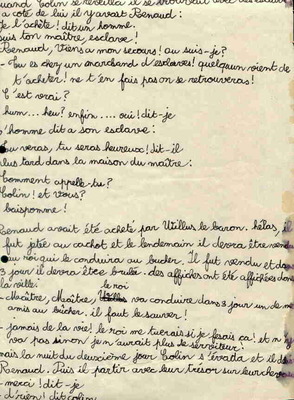 quand Colin se réveilla il se trouvait avec des esclaves
a coté de lui il y avait Renaud:
je l'achète! dit un homme.
suis ton maître, esclave!
Renaud, viens a mon secours! ou suis-je?
- Tu es chez un marchand d'esclaves! quelqu'un vient de
t'acheter! ne t'en fais pas on se retrouveras!
C'est vrai?
hum... heu? enfin.... oui! dit-je
l'homme dit a son esclave:
tu verras, tu seras heureux! dit-il
plus tard dans la maison du maître:
Comment appelle-tu?
Colin! et vous?
baispomme!
Renaud avait été acheté par Villus le baron. hélas, il
fut jetée au cachot et le lendemain il devra être vendu
au roi qui le conduira au bucher. Il fut vendu et dans
3 jour il devra être brulée. des affiches ont été affichées dans
la ville:
- Maître, Maître, le roi va conduire dans 3 jour un de mes
amis au bûcher. il faut le sauver!
- jamais de la vie! le roi me tuerais si je fesais ça! et n'y
va pas sinon je n'aurait plus de serviteur!
mais la nuit du deuxième jour Colin s'évada et il dé
Renaud. Puis il partir avec leur trésor sur leur cheval
- merci! dit-je
- d'rien! dit colin